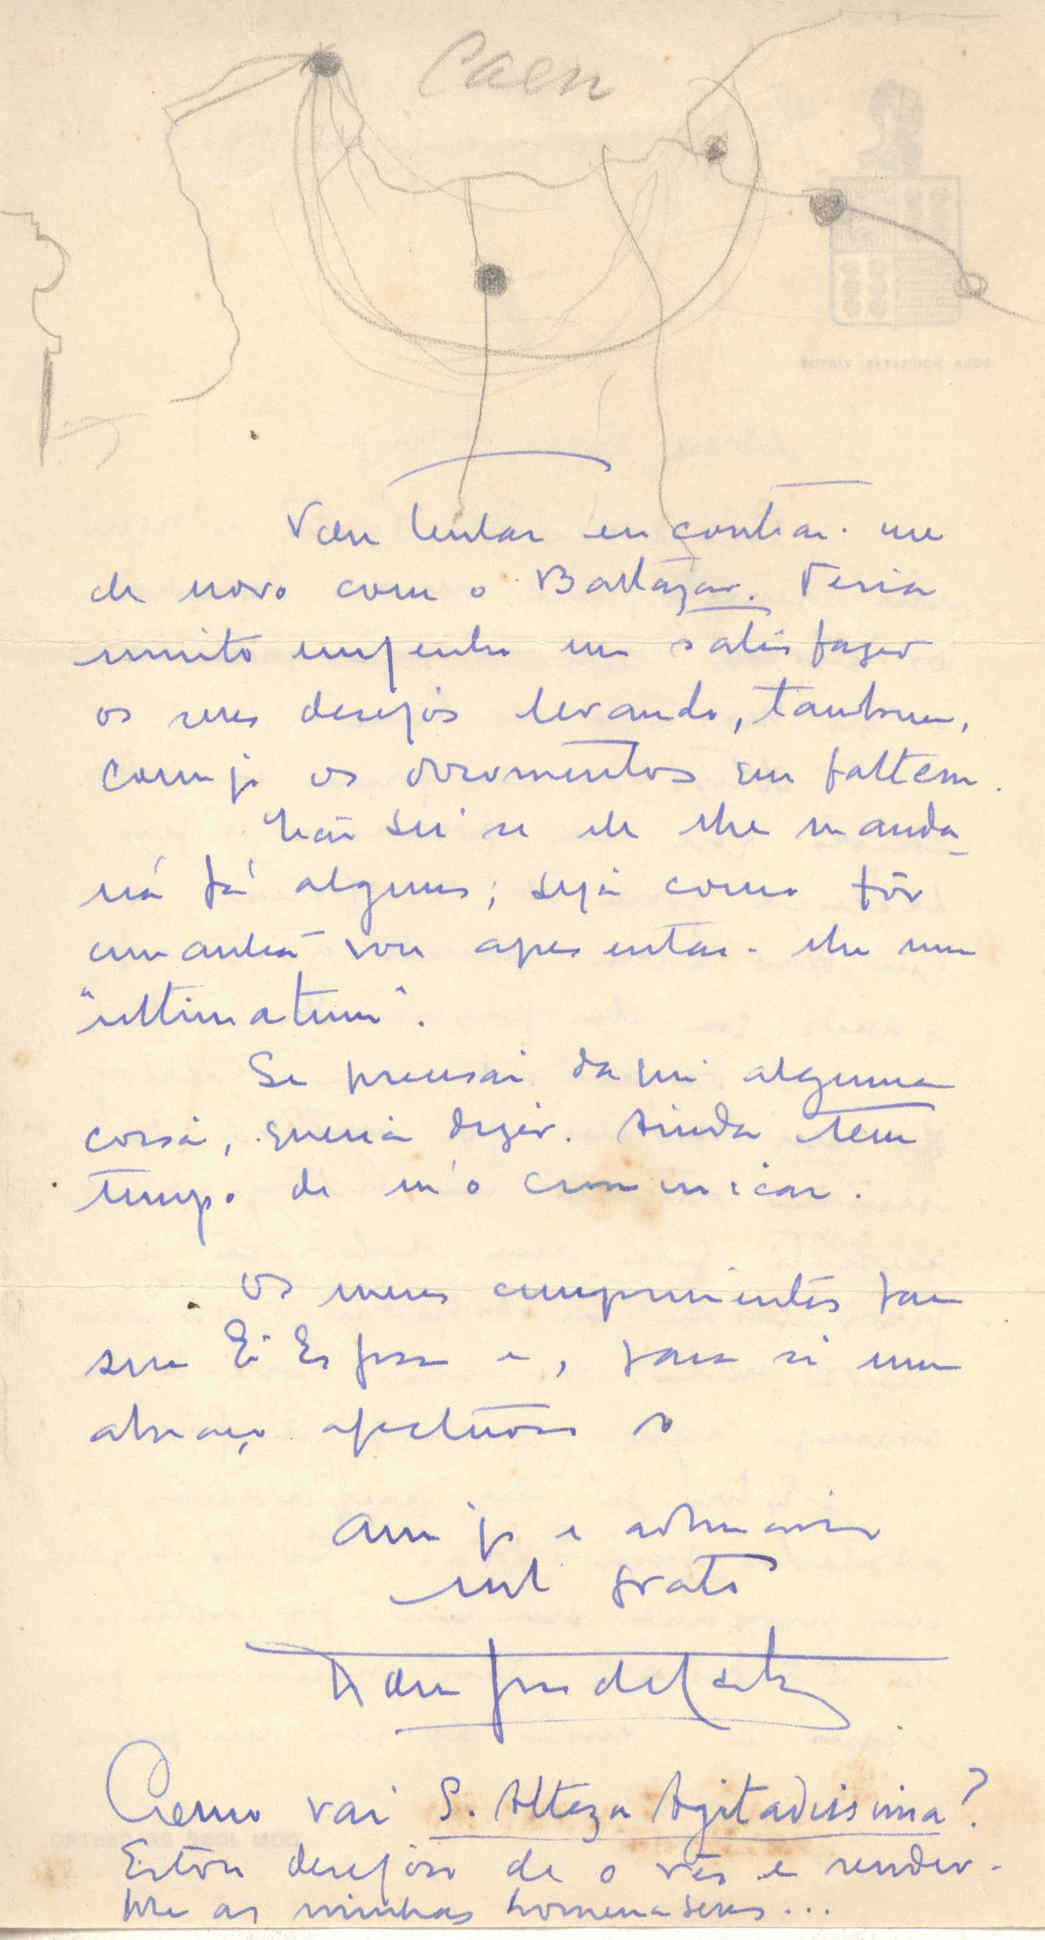 Caen
Vou tentar encontrar-me
de novo com o Baltazar. Teria
muito empenho em satisfazer
os seus desejos levando, tambem,
comigo os documentos que faltem.
Não sei se ele lhe manda-
rá já alguns; seja como fôr
amanhã vou apresentar-lhe um
"ultimatum".
Se precisar daqui alguma
coisa, queira dizer. Ainda tem
tempo de m'o comunicar.
Os meus cumprimentos para
sua Esposa e, para si um
abraço afectuoso do
amigo e admirador
mt grato
Como vai S. Alteza Agitadissima?
Estou desejoso de o vêr e render-
lhe as minhas homenagens...